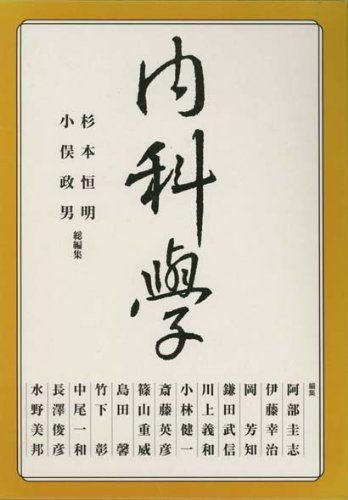 内科學
杉本恒明
小俣政男
総編集
編集
阿部圭志
伊藤幸治
岡芳知
鎌田武信
川上義和
小林健一
斎藤英彦
篠山重威
島田馨
竹下彰
中尾一和
長澤俊彦
水野美邦